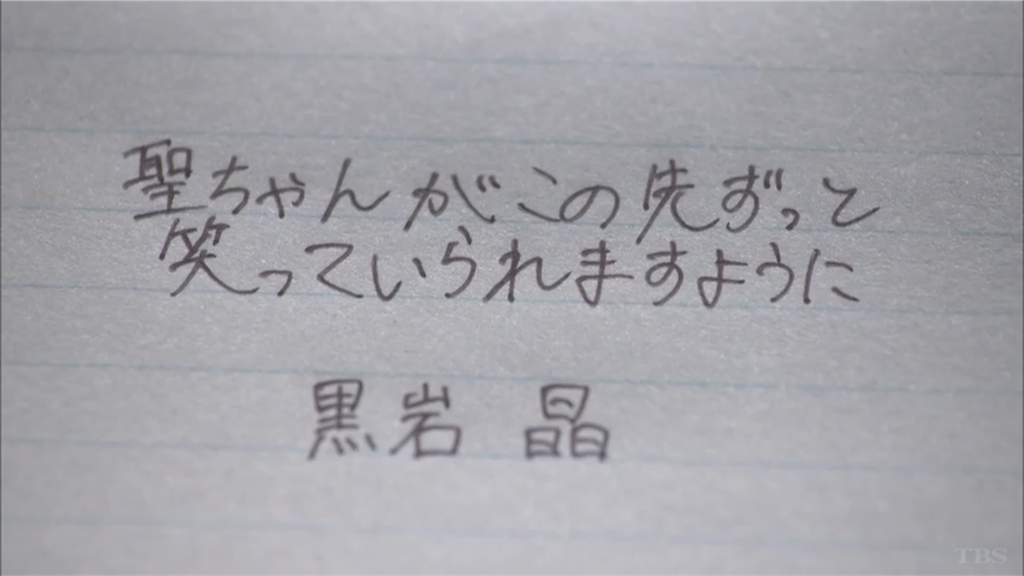 聖ちゃんがこの先ずっと
笑っていられますように
黒岩 晶
TBS